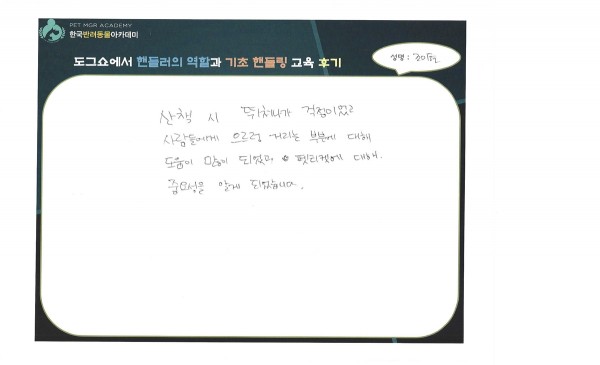 PET MGR ACADEMY
한국반려동물아카데미
도그쇼에서 핸들러의 역할과 기초 핸들링 교육 후기
성명 :
산책 시 뛰쳐나가 걱정이었고
사람들에게 으르렁 거리는 부분에 대해
도움이 많이 되었고 펫티켓에 대해.
중요성을 알게 되었습니다.